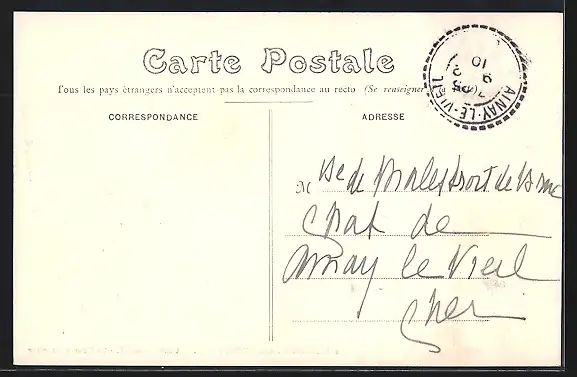 Carte Postale
Tous les pays étrangers n'acceptent pas la correspondance au recto (Se renseigner
CORRESPONDANCE
ADRESSE
AINAY-LE-VIEIL
M de de
de
Ainay le Vieil
Cher